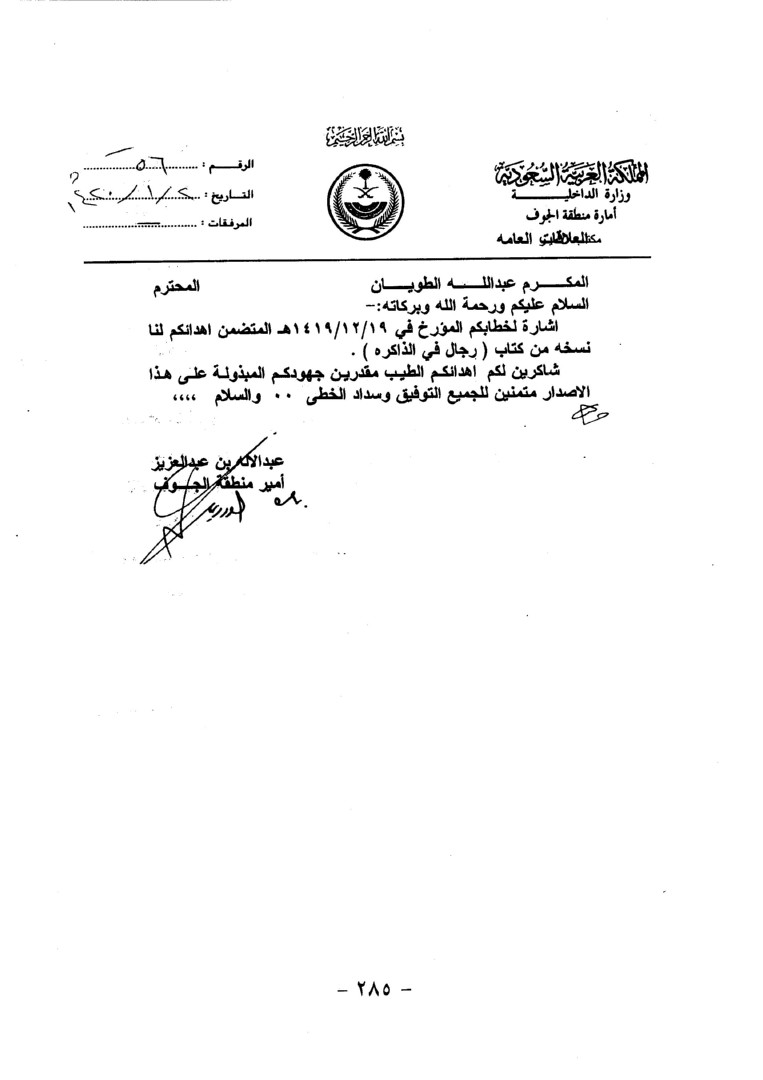 بسم الله الرحمن الرحيم
المملكة العربية السعودية
وزارة الداخلية
أمارة منطقة الجوف
العلاقات العامه
الرقم : ٥٦
التاريخ : ٢ / ١ / ١٤٢٠
المرفقات : —
المكرم عبدالله الطويان المحترم
السلام عليكم ورحمة الله وبركاته:-
اشارة لخطابكم المؤرخ في ١٤١٩/١٢/١٩هـ المتضمن اهدائكم لنا
نسخه من كتاب ( رجال في الذاكره ) .
شاكرين لكم اهدائكم الطيب مقدرين جهودكم المبذولة على هذا
الاصدار متمنين للجميع التوفيق وسداد الخطى ٠٠ والسلام ،،،،
عبدالاله بن عبدالعزيز
أمير منطقة الجوف
- ٢٨٥ -